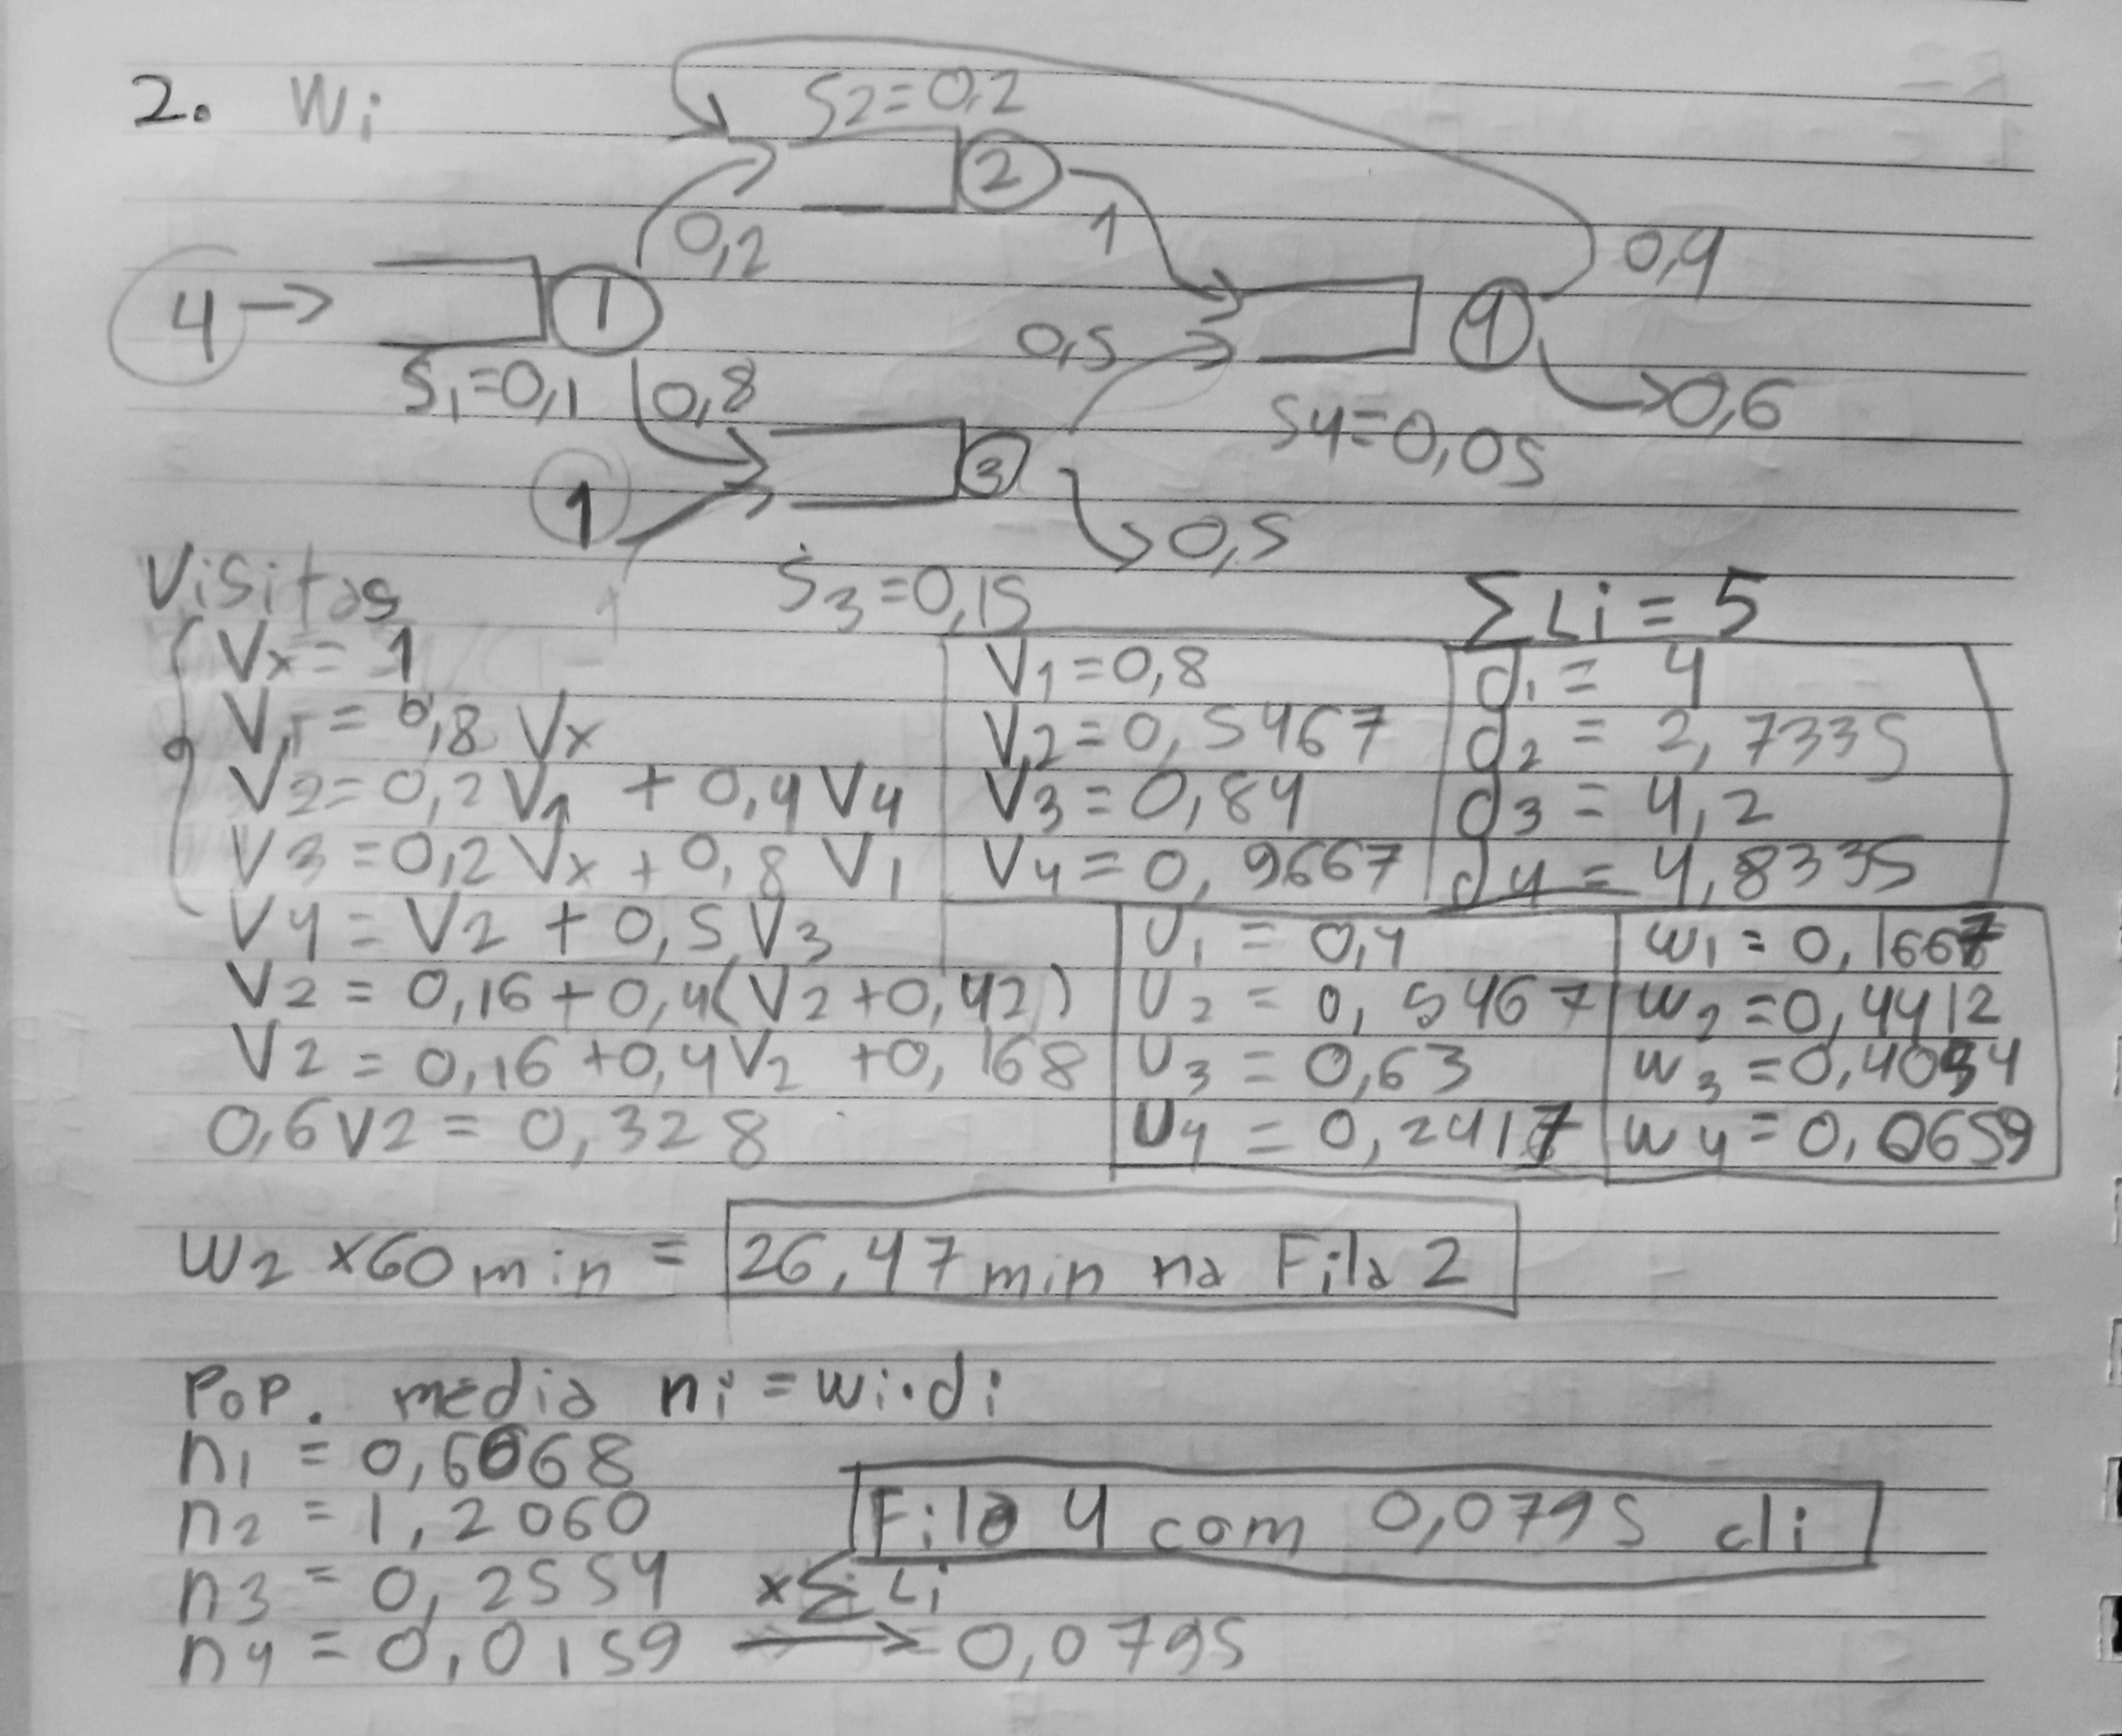 2. Wi
S2=0,2
2
0,2
1
0,4
4 →
1
0,5
4
S1=0,1
0,8
S4=0,05
0,6
1
3
0,5
S3=0,15
Visitas
Vx=1
V1=0,8 Vx
V2=0,2 V1 + 0,4 V4
V3=0,2 Vx + 0,8 V1
V4 = V2 + 0,5 V3
V2 = 0,16+0,4(V2+0,42)
V2 = 0,16+0,4V2 +0,168
0,6V2 = 0,328
V1=0,8
V2=0,5467
V3=0,84
V4=0,9667
ΣLi = 5
d1 = 4
d2 = 2,7335
d3 = 4,2
d4 = 4,8335
U1 = 0,4
U2 = 0,5467
U3 = 0,63
U4 = 0,2417
w1 = 0,1667
w2 = 0,4412
w3 = 0,4054
w4 = 0,0659
w2 x60min = 26,47min na Fila 2
Pop. média ni = wi·di
n1 = 0,6668
n2 = 1,2060
n3 = 0,2554
n4 = 0,0159 xΣLi → 0,0795
Fila 4 com 0,0795 cli